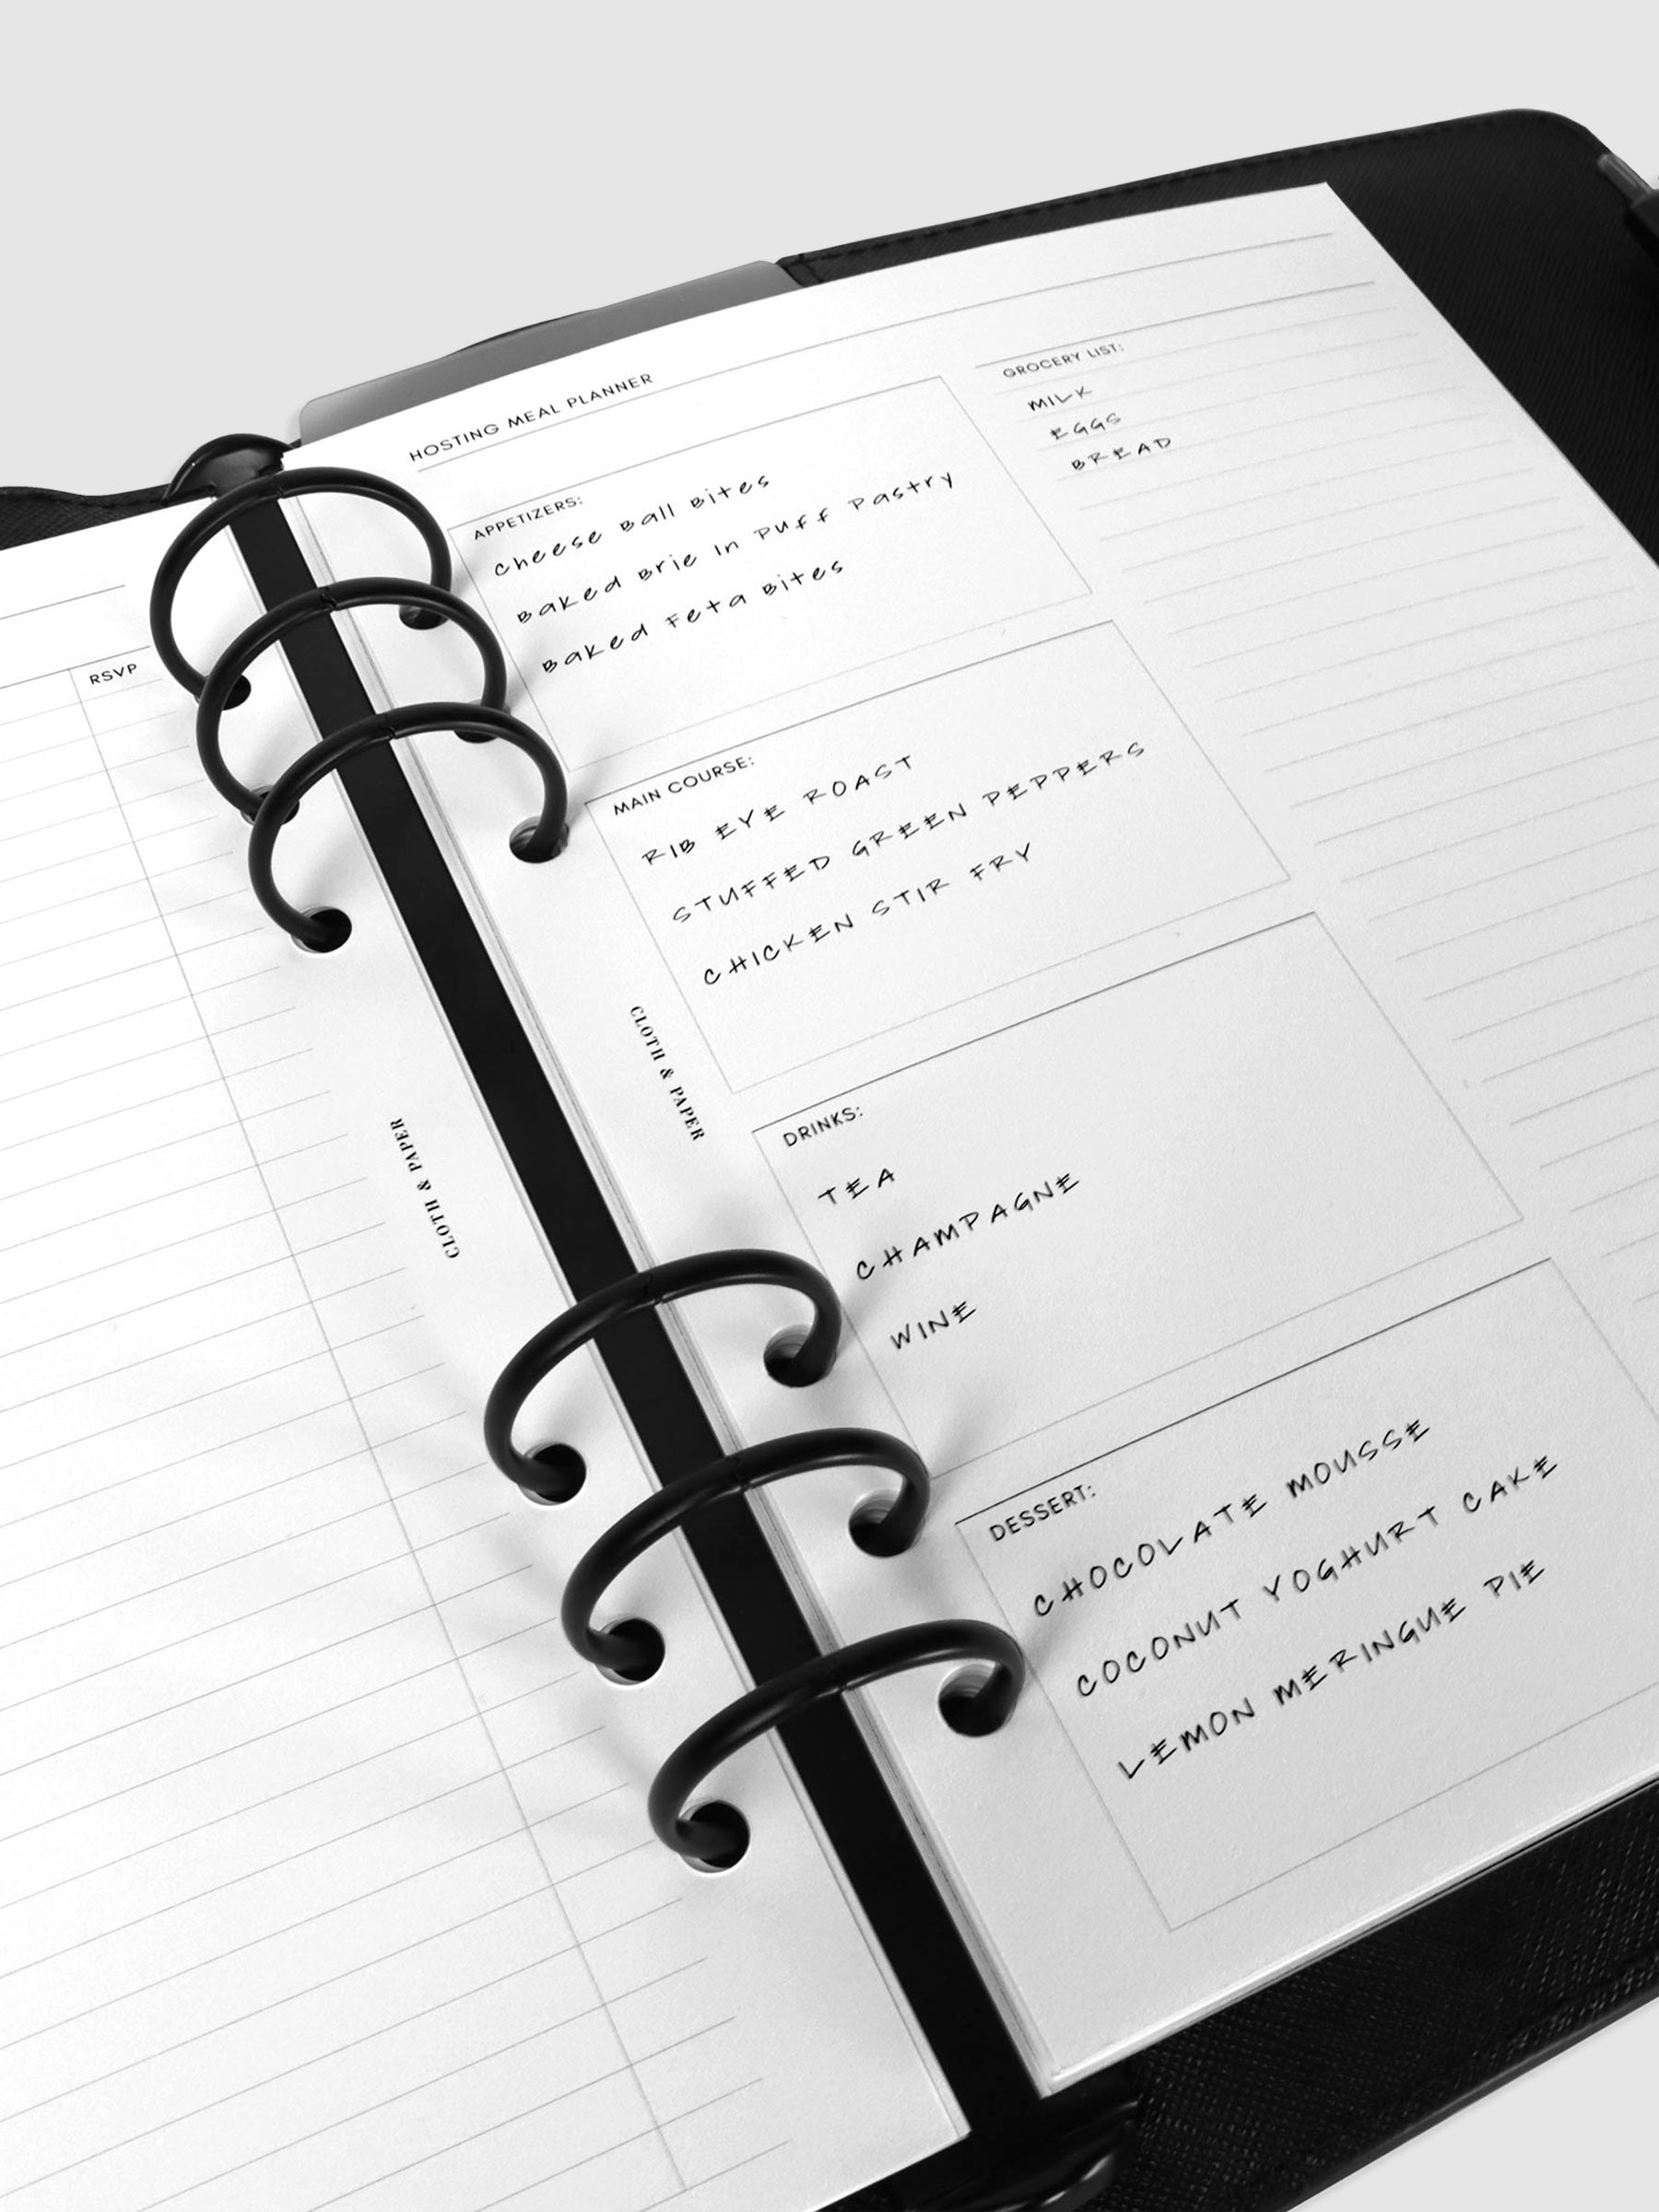 RSVP
CLOTH & PAPER
HOSTING MEAL PLANNER
APPETIZERS:
cheese Ball Bites
Baked Brie In Puff Pastry
Baked Feta Bites
MAIN COURSE:
RIB EYE ROAST
STUFFED GREEN PEPPERS
CHICKEN STIR FRY
CLOTH & PAPER
DRINKS:
TEA
CHAMPAGNE
WINE
DESSERT:
CHOCOLATE MOUSSE
COCONUT YOGHURT CAKE
LEMON MERINGUE PIE
GROCERY LIST:
MILK
EGGS
BREAD